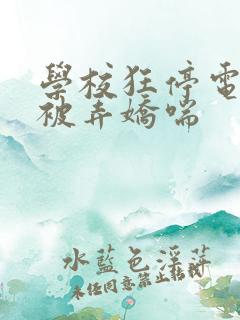 學校狂停電
被弄嬌喘
水藍色淫萍
未任同意禁止轉載